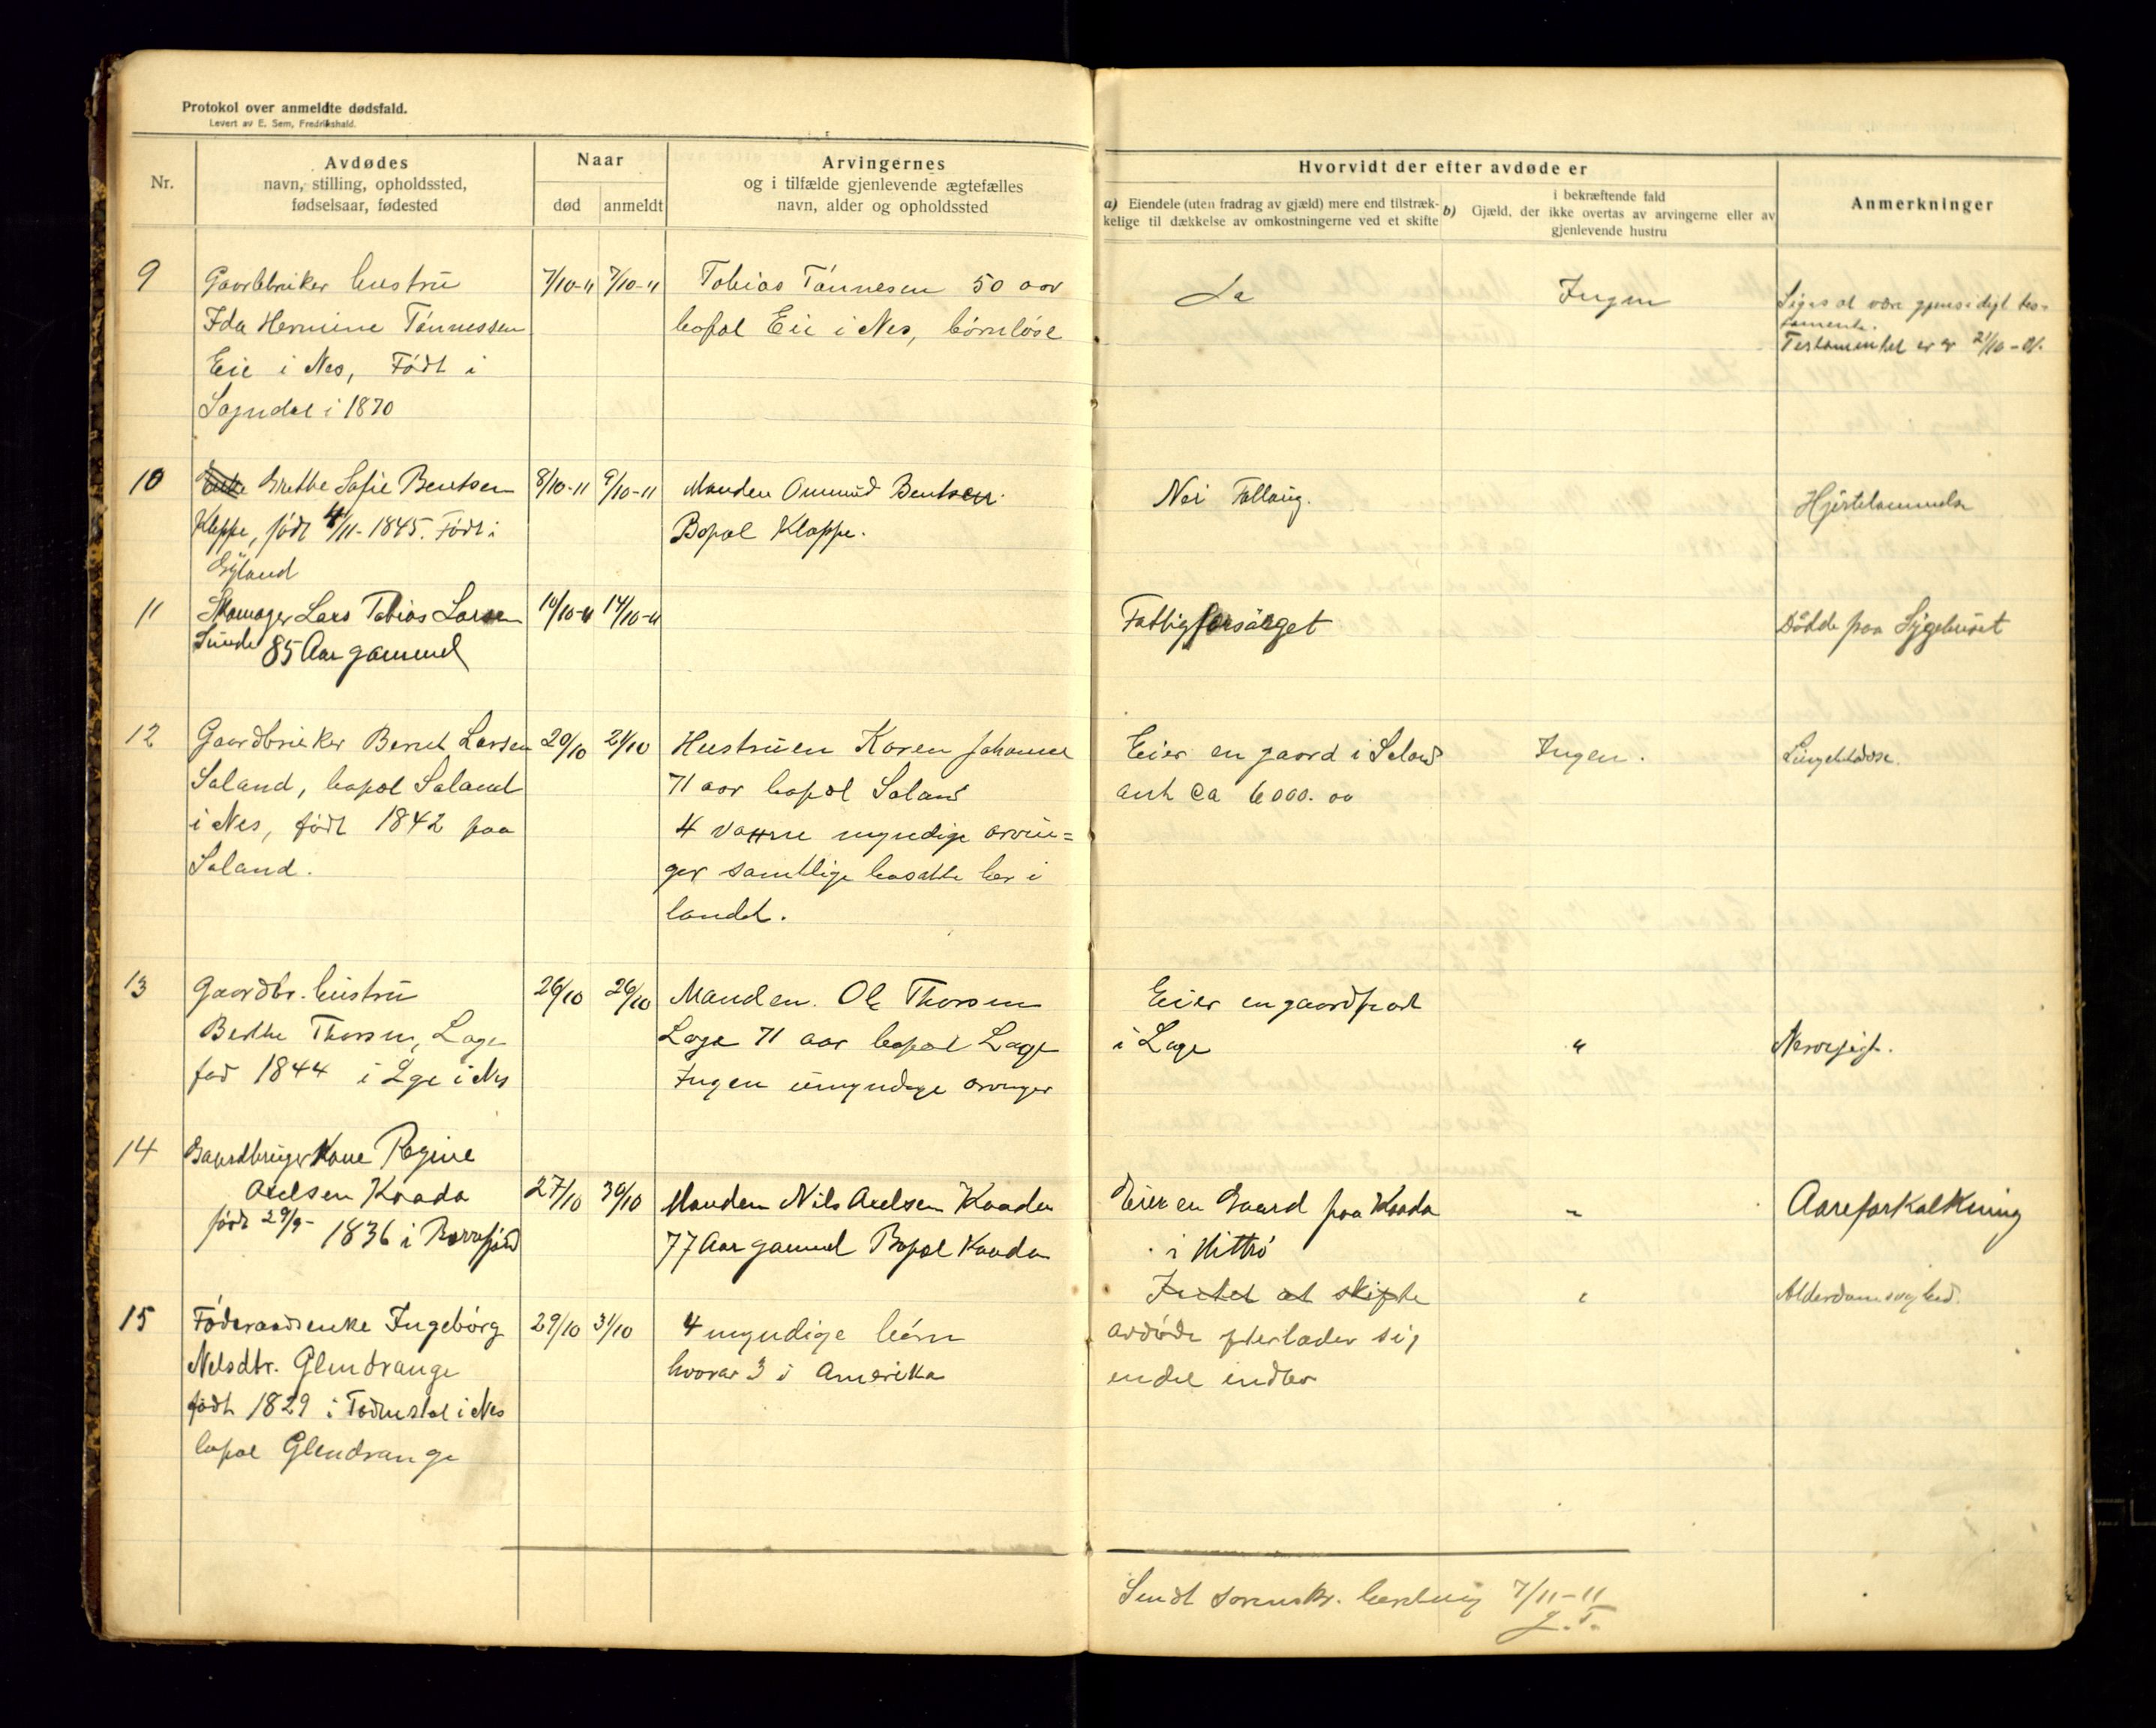 Protokol over anmeldte dødsfald.
Levert av E. Sem, Fredrikshald.
Nr.
Avdødes
navn, stilling, opholdssted,
fødselsaar, fødested
Naar
død
anmeldt
Arvingernes
og i tilfælde gjenlevende ægtefælles
navn, alder og opholdssted
Hvorvidt der efter avdøde er
a) Eiendele (uten fradrag av gjæld) mere end tilstræk-
kelige til dækkelse av omkostningerne ved et skifte
b) Gjæld, der
i bekræftende fald
ikke overtas av arvingerne eller av
gjenlevende hustru
Anmerkninger
9
Gaardbruker hustru
Ida Hermine Tönnessen
Eie i Nes, Født i
Sogndal i 1870
7/10-11
7/10-11
Tobias Tönnesen 50 aar
bopal Eie i Nes, börnlöse
Ja
Ingen
Siges at være gjensidigt tes-
tamente.
Testamentet er av 21/10-01.
10
Grethe Sofie Bentsen
Kleppe, født 4/11-1845. Født i
Gyland
8/10-11
9/10-11
Manden Ommund Bentsen.
Bopal Kleppe.
Nei Fattig.
Hjertelammelse
11
Skomager Lars Tobias Larsen
Sunde 85 Aar gammel
10/10-11
14/10-11
Fattigforsörget
Dödde paa Sygehuset
12
Gaardbruker Bernt Larsen
Saland, bopal Saland
i Nes, født 1842 paa
Saland.
20/10
21/10
Hustruen Karen Johanne
71 aar bopal Saland
4 vaxne myndige arvin=
ger samtlige bosatte her i
landet.
Eier en gaard i Saland
ant ca 6000.00
Ingen.
13
Gaardbr. hustru
Berthe Thorsen, Lage
fød 1844 i Lge i Nes
26/10
26/10
Manden. Ole Thorsen
Lage 71 aar bopal Lage
Ingen umyndige arvinger
Eier en gaardpart
i Lage
"
Nervegigt.
14
Gaardbruger Kone Regine
Axelsen Kaada
født 29/9-1836 i
27/10
30/10
Manden Nils Axelsen Kaada
77 Aar gammel Bopal Kaada
Eier en Gaard paa Kaada
i Hitterö
"
Aareforkalkning
15
Föderaadsenke Ingeborg
Nelsdtr. Glendrange
født 1829 i i Nes
bopal Glendrange
29/10
31/10
4 myndige börn
hvorav 3 i Amerika
Intet at skifte
avdöde efterlader sig
endel indbo
"
Alderdomssvaghed.
Sendt sorenskr. 7/11-11
J. T.